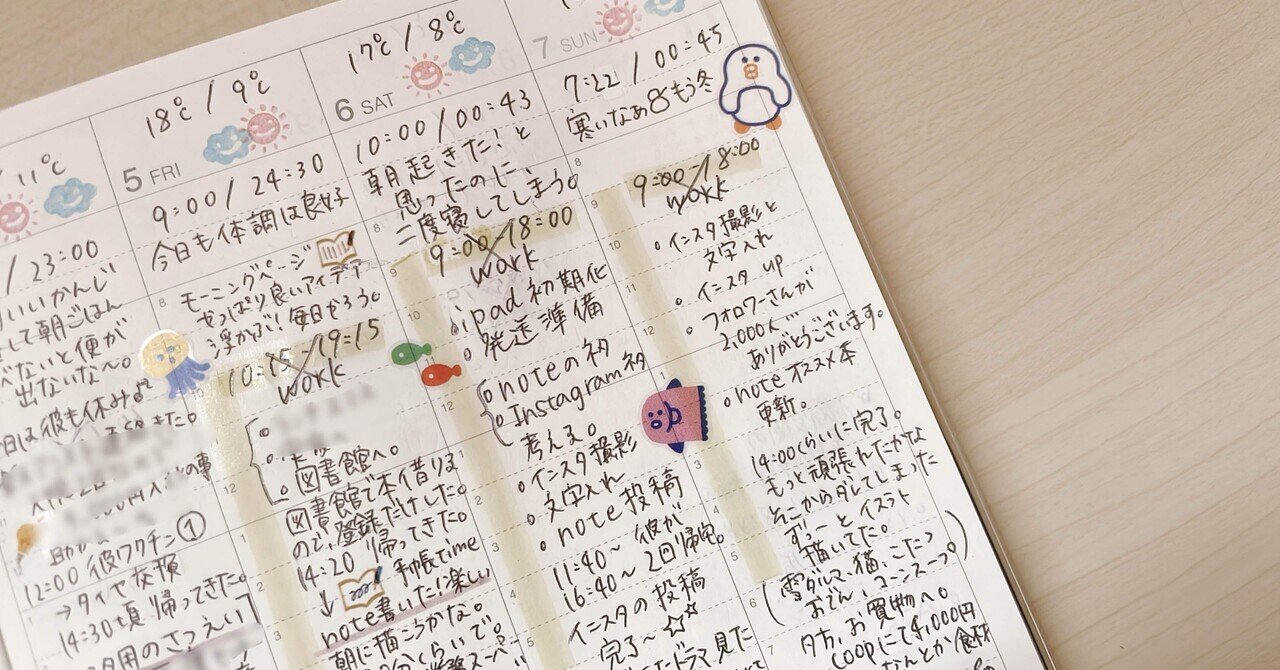 11℃
23:00
いいかんじ
して朝ごはん
べないと便が
出ないな〜。
日は彼も休み♪
12:00 彼ワクチン①
→タイヤ交換
14:30頃 帰ってきた。
用のさつえい
18℃ / 9℃
5 FRI
9:00 / 24:30
今日も体調は良好
8
モーニングページ
やっぱり良いアイデア
浮かぶ!毎日やろう。
10:15-19:15
work
図書館へ。
図書館で本借りる
ので、登録だけした。
14:20 帰ってきた。
↓ 手帳time
note書いた!楽しい
朝に描こうかな。
17℃ / 8℃
6 SAT
10:00 / 00:43
朝起きた!と
思ったのに、
二度寝してしまう。
9:00/18:00
work
ipad初期化
発送準備
noteのネタ
Instagramネタ
考える。
インスタ撮影
文字入れ
note投稿
11:40〜 彼が
16:40〜 2回帰宅。
インスタの投稿
完了〜☆☆
ドラマ見た
7 SUN
7:22 / 00:45
寒いなぁ もう冬
8
9:00/18:00
work
インスタ撮影と
文字入れ
インスタup
フォロワーさんが
2,000人で
ありがとうございます。
noteオススメ本
更新。
14:00くらいに完了。
もっと頑張れたかな
そこからダレてしまった
ずーっとイラスト
描いてた。
(雪ダルマ、猫、こたつ
おでん、コーンスープ。)
夕方、お買物へ。
COOPにて4,000円
なんとか食材